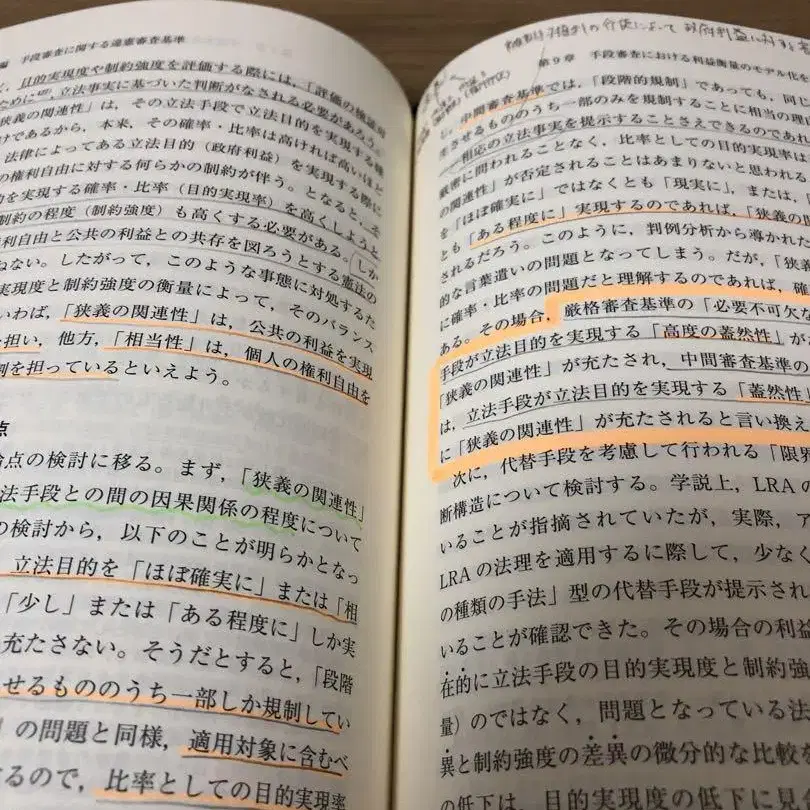 編　手段審査に関する違憲審査基準
，目的実現度や制約強度を評価する際には，「評価の検証
ために，立法事実に基づいた判断がなされる必要があろう。
狭義の関連性」は，その立法手段で立法目的を実現する確
けであるから，本来，その確率・比率は高ければ高いほど
法律によってある立法目的（政府利益）を実現する際に
の権利自由に対する何らかの制約が伴う。となると，そ
的を実現する確率・比率（目的実現率）を高くしようと
制約の程度（制約強度）も高くする必要がある。しか
権利自由と公共の利益との共存を図ろうとする憲法の
ねない。したがって，このような事態に対処するた
実現度と制約強度の衡量によって，そのバランス
いわば，「狭義の関連性」は，公共の利益を実現
を担い，他方，「相当性」は，個人の権利自由を
割を担っているといえよう。
点
論点の検討に移る。まず，「狭義の関連性」
法手段との間の因果関係の程度について
の検討から，以下のことが明らかとなっ
立法目的を「ほぼ確実に」または「相
「少し」または「ある程度に」しか実
充たさない。そうだとすると，「段階
させるもののうち一部しか規制してい
の問題と同様，適用対象に含むべ
するので，比率としての目的実現率
によって 政府利益に対する
第9章　手段審査における利益衡量のモデル化
，中間審査基準では，「段階的規制」であっても，同
生させるもののうち一部のみを規制することに相当の理由
相応の立法事実を提示することさえできるのであれ
厳密に問われることなく，比率としての目的実現率は
の関連性」が否定されることはあまりないと思われる
を「ほぼ確実に」ではなくとも「現実に」，または，
とも「ある程度に」実現するのであれば，「狭義の関
されるだろう。このように，判例分析から導かれた
的な言葉遣いの問題となってしまう。だが，「狭義
に確率・比率の問題だと理解するのであれば，確
ある。その場合，厳格審査基準の「必要不可欠な
手段が立法目的を実現する「高度の蓋然性」が
「狭義の関連性」が充たされ，中間審査基準の
は，立法手段が立法目的を実現する「蓋然性」
に「狭義の関連性」が充たされると言い換え
次に，代替手段を考慮して行われる「限界
断構造について検討する。学説上，LRAの
いることが指摘されていたが，実際，ア
LRAの法理を適用するに際して，少なく
の種類の手法」型の代替手段が提示され
いることが確認できた。その場合の利益
在的に立法手段の目的実現度と制約強
量）のではなく，問題となっている法
異と制約強度の差異の微分的な比較を
の低下は，目的実現度の低下に見